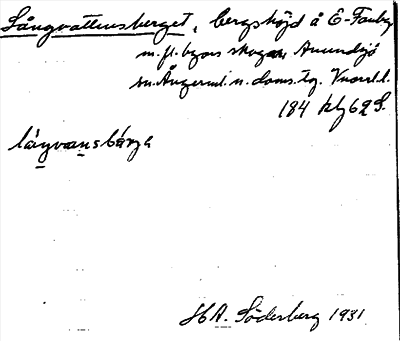 Långvattensberget, bergshöjd å E-Tanby
m.fl. byars skogar Anundsjö
sn. Ångerml. n. doms. tg. Vnorrl. l.
184 klg 62 S.
långvansbärge
H A. Söderberg 1931